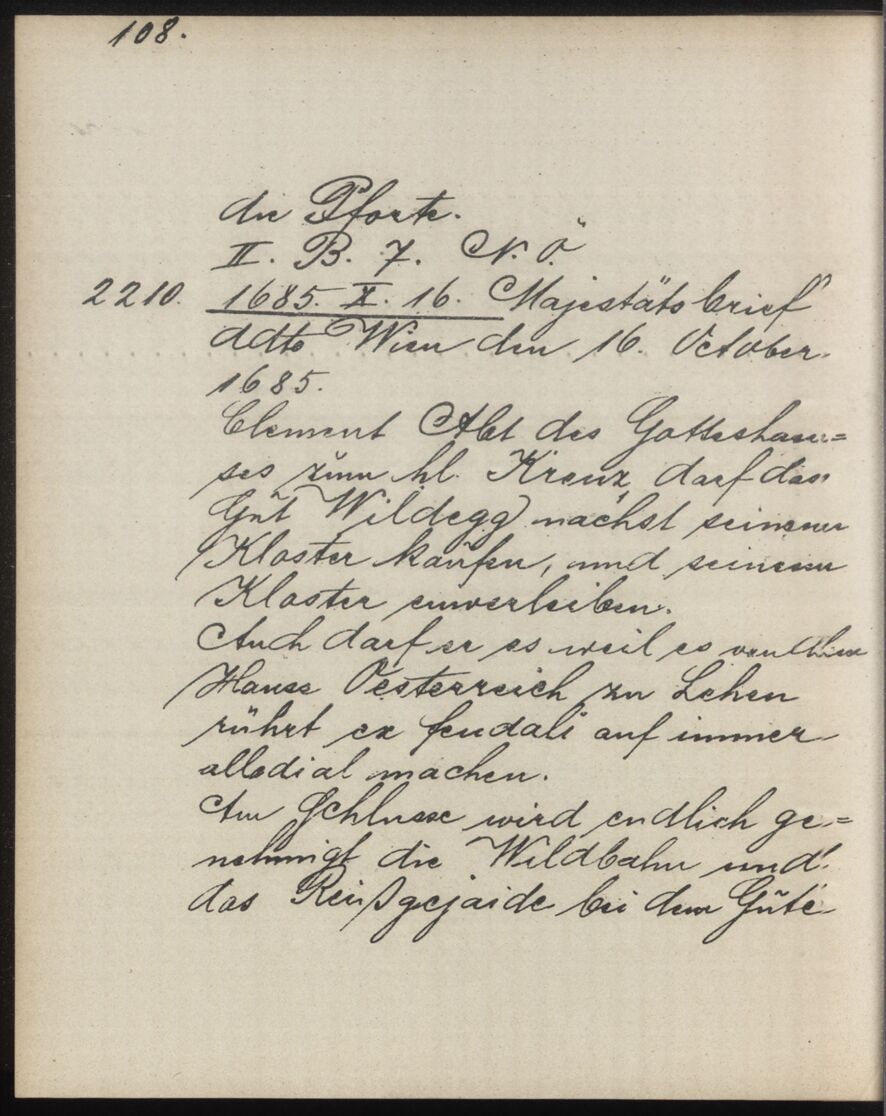 108.
die Pforte.
II. B. 7. N. Ö
2210. 1685. X. 16. Majestätsbrief
ddto Wien den 16. October
1685.
Clement Abt des Gotteshau=
ses zum hl. Kreuz darf das
Gut Wildegg nächst seinem
Kloster kaufen, und seinem
Kloster einverleiben.
Auch darf er es weil es vom
Hause Oesterreich zu Lehen
rührt ex feudali auf immer
allodial machen.
Am Schlusse wird endlich ge=
nehmigt die Wildbahn und
das Reißgejaide bei dem Gute